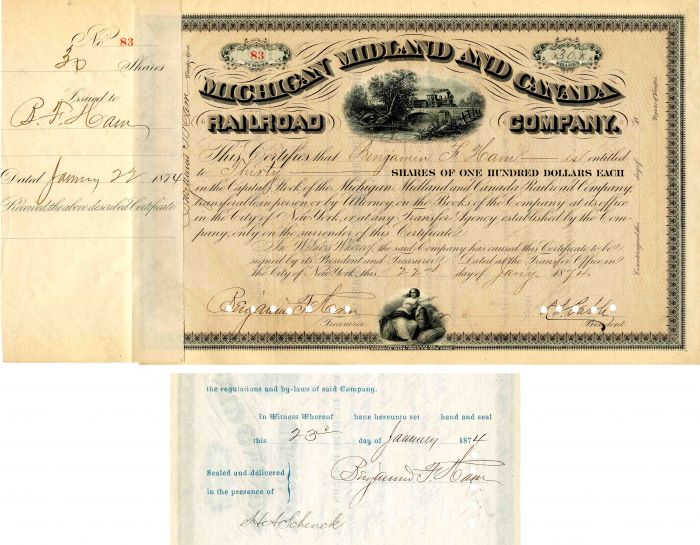 No 83
30 Shares
Issued to
B. F. Ham
Dated January 22 1874
Received the above described Certificate
83
NUMBER
30
SHARES
MICHIGAN MIDLAND AND CANADA
RAILROAD COMPANY.
This Certifies that Benjamin F Ham is entitled
to Thirty SHARES OF ONE HUNDRED DOLLARS EACH
in the Capital Stock of the Michigan Midland and Canada Railroad Company,
transferable in person or by Attorney on the Books of the Company at its office
in the City of New York, or at any Transfer Agency established by the Com-
pany, only on the surrender of this Certificate
In Witness Whereof, the said Company has caused this Certificate to be
signed by its President and Treasurer. Dated at the Transfer Office in
the City of New York, this 22nd day of Jany 1874.
Benjamin F. Ham
Treasurer
President
Countersigned this day of
Register of Transfers
the regulations and by-laws of said Company.
In Witness Whereof have hereunto set hand and seal
this 23d day of January 1874
Sealed and delivered
in the presence of
Benjamin F. Ham
H A Schenck